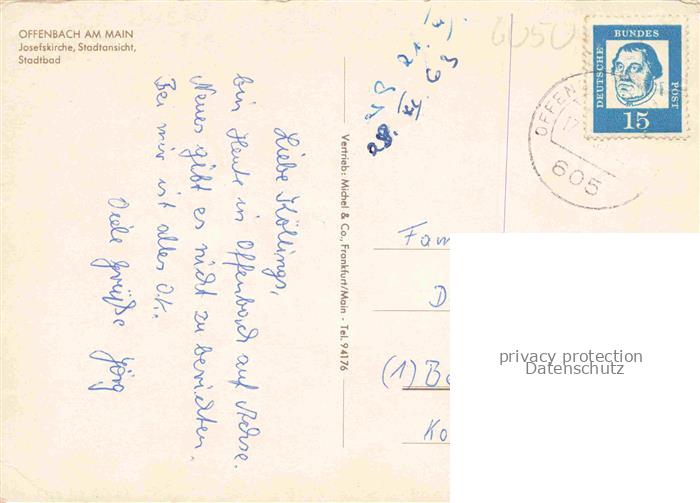 OFFENBACH AM MAIN
Josefskirche, Stadtansicht,
Stadtbad
Liebe Köllings,
bin Heute in Offenbach auf Achse.
Neues gibt es nicht zu berichten.
Bei mir ist alles O.K.
Viele Grüße Jörg
Vertrieb: Michel & Co., Frankfurt/Main - Tel. 94176
6050
DEUTSCHE
BUNDES
POST
15
OFFEN
605
Fam
D
(1) Be
Ko
privacy protection
Datenschutz